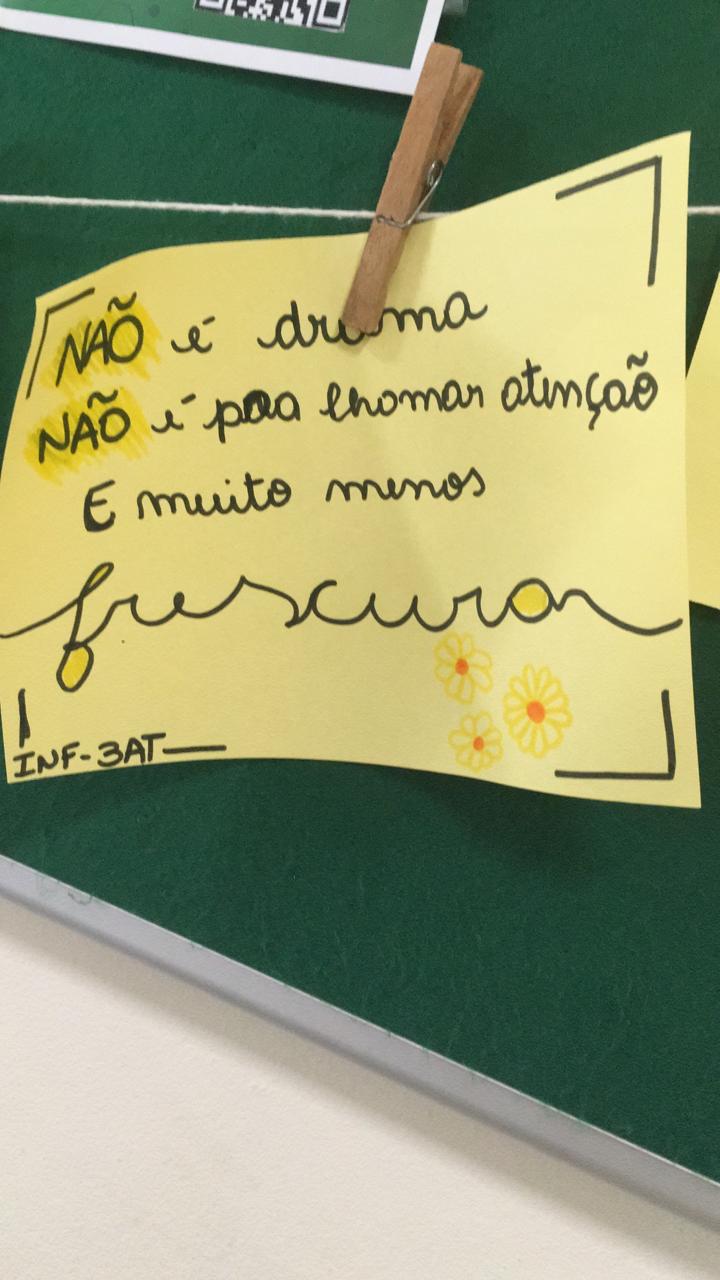 NÃO é drama
NÃO é para chamar atenção
E muito menos
frescura
INF-3AT